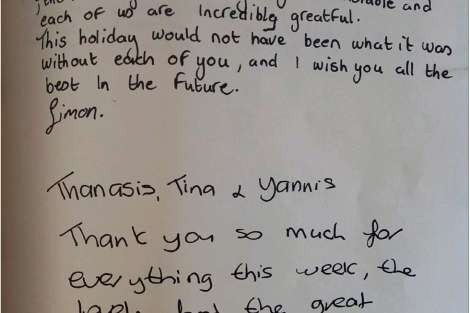 and
each of us are incredibly greatful.
This holiday would not have been what it was
without each of you, and I wish you all the
best in the future.
Simon.
Thanasis, Tina & Yannis
Thank you so much for
everything this week, the
the great